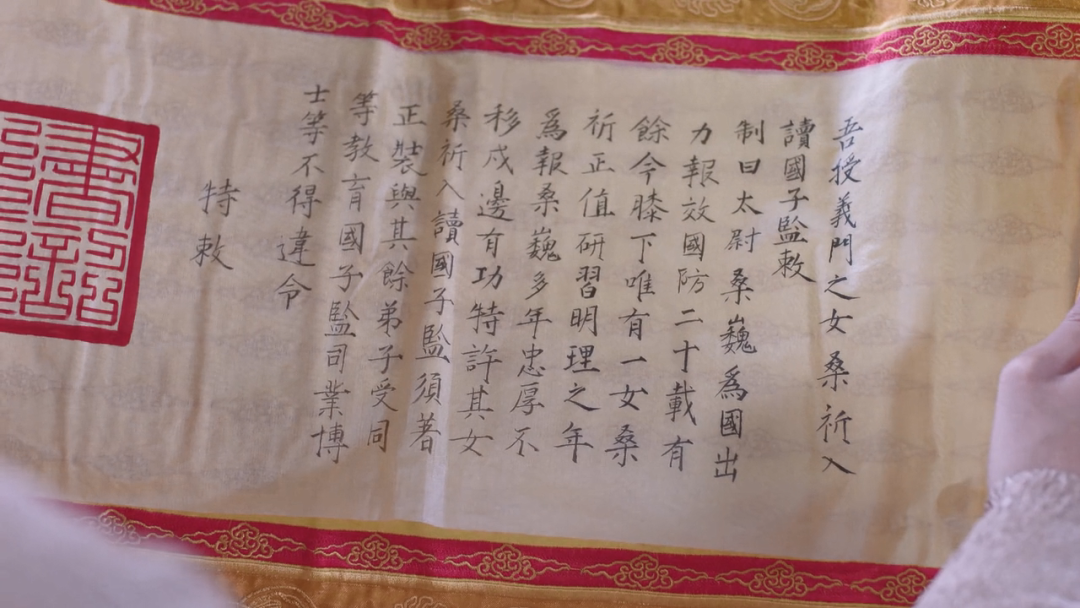 吾授義門之女桑祈入
讀國子監敕
制曰太尉桑巍爲國出
力報效國防二十載有
餘今膝下唯有一女桑
祈正值研習明理之年
爲報桑巍多年忠厚不
移戍邊有功特許其女
桑祈入讀國子監須著
正裝與其餘弟子受同
等教育國子監司業博
士等不得違令
特敕